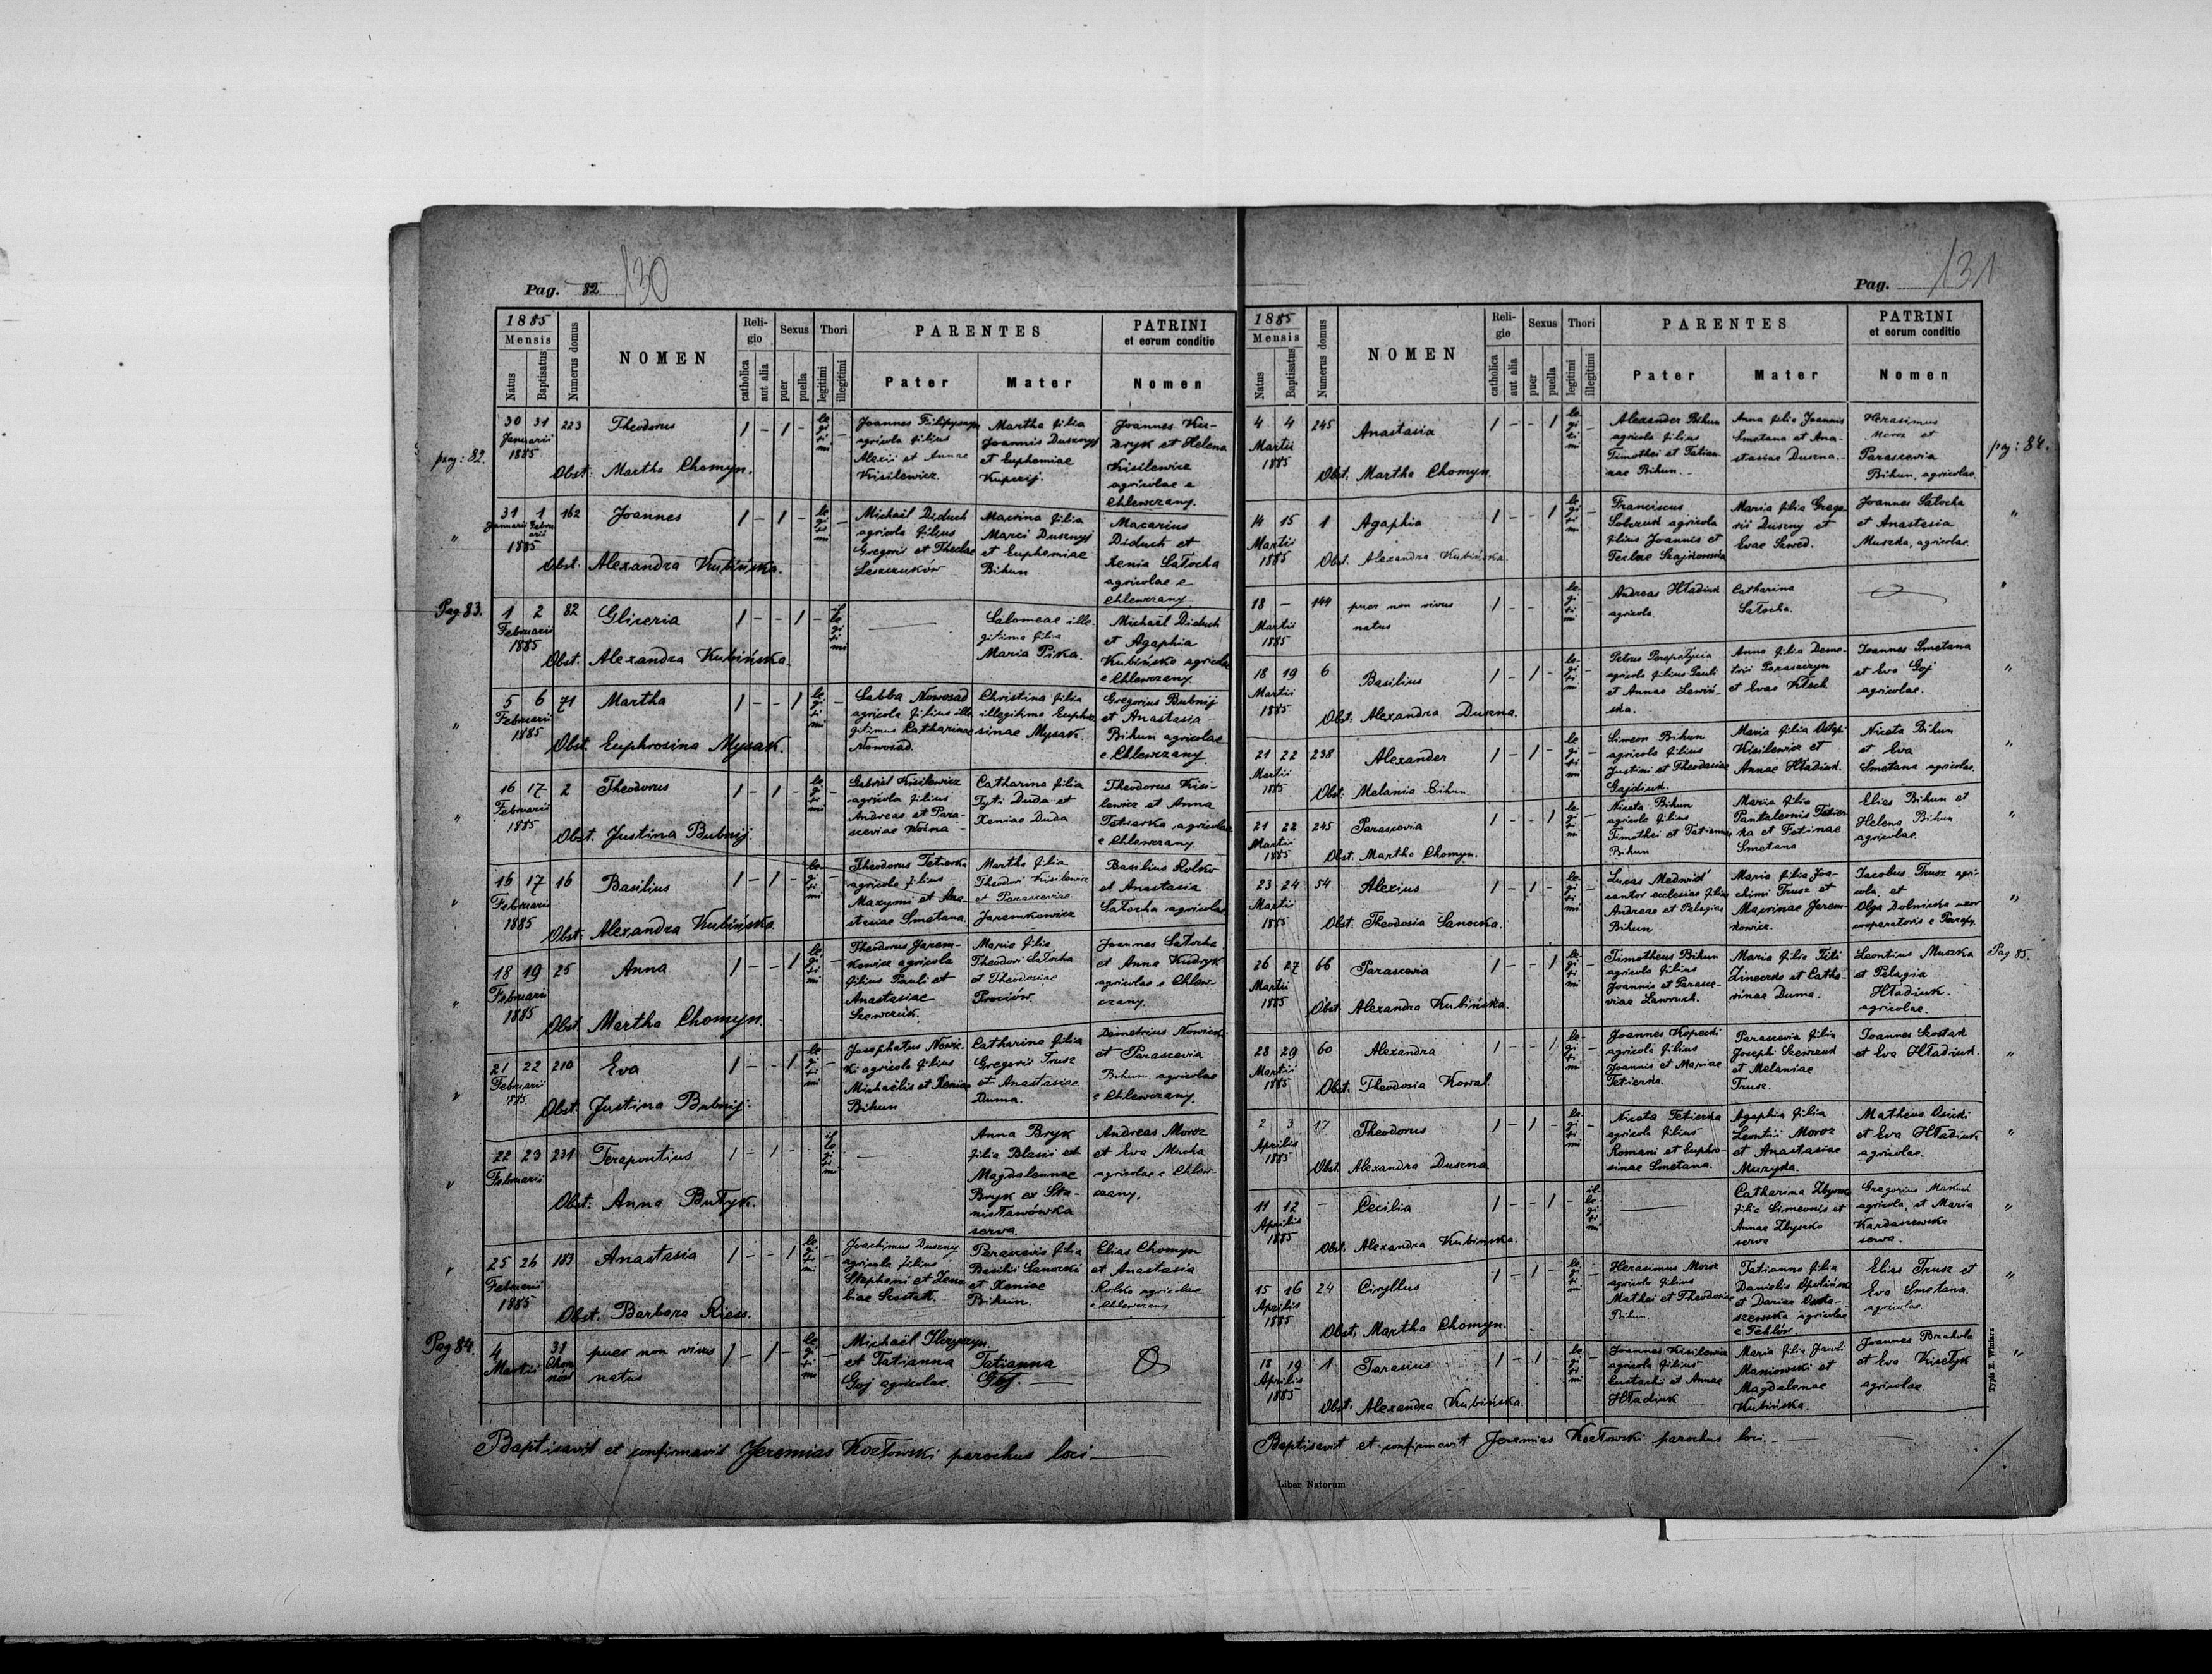 Pag. 82 130
1885
Mensis
Natus
Baptisatus
Numerus domus
NOMEN
Religio
catholica
aut alia
Sexus
puer
puella
Thori
legitimi
illegitimi
PARENTES
Pater
Mater
PATRINI
et eorum conditio
Nomen
pag: 82.
30 31 223 Theodorus 1 - 1 - legitimi -
Januarii
1885
Obst: Martha Chomyn.
Joannes
agricola filius
Alexii et Annae
Kisilewicz.
Martha filia
Joannis Dusznyj
et Euphemiae
Joannes Kudryk et Helena
Kisilewicz
agricolae e
Chlewczany.
31 1 162 Joannes 1 - 1 - legitimi -
Januarii Februarii
1885
Obst: Alexandra Kubińska.
Michaël Diduch
agricola filius
Gregorii et Theclae
Leszczuków
Macrina filia
Marci Dusznyj
et Euphemiae
Bihun
Macarius
Diduch et
Xenia Łatocha
agricolae e
Chlewczany
Pag 83.
1 2 82 Gliceria 1 - - 1 - illegitimi
Februarii
1885
Obst. Alexandra Kubińska.
Salomeae illegitima filia
Maria Pika.
Michaël Diduch
et Agaphia
Kubińska agricolae
e Chlewczany
5 6 71 Martha 1 - - 1 legitimi -
Februarii
1885
Obst. Euphrosina Mysak.
Sabba Nowosad
agricola filius illegitimus Catharinae
Nowosad.
Christina filia
illegitima Euphrosinae Mysak.
Gregorius Bubnij
et Anastasia
Bihun agricolae
e Chlewczany.
16 17 2 Theodorus 1 - 1 - legitimi -
Februarii
1885
Obst. Justina Bubnij.
Gabriel Kisilewicz
agricola filius
Andreas et Parasceviae
Catharina filia
Tyti Duda et
Xeniae Duda
Theodorus Kisilewicz et Anna
Tetierka agricolae
e Chlewczany.
16 17 16 Basilius 1 - 1 - legitimi -
Februarii
1885
Obst. Alexandra Kubińska.
Theodorus Tetierka
agricola filius
Maxymi et Anastasiae Smetana.
Martha filia
Theodori Kisilewicz
et Parasceviae
Jaremkowicz
Basilius Rolko
et Anastasia
Łatocha agricolae
18 19 25 Anna 1 - - 1 legitimi -
Februarii
1885
Obst. Martha Chomyn.
Theodorus Jaremkowicz agricola
filius Pauli et
Anastasiae
Szewczuk.
Maria filia
Theodori Łatocha
et Theodosiae
Prociów.
Joannes Łatocha
et Anna Kudryk
agricolae e Chlewczany.
21 22 210 Eva 1 - - 1 legitimi -
Februarii
1885
Obst. Justina Bubnij.
Josaphatus Nowicki agricola filius
Michaëlis et Xeniae
Bihun
Catharina filia
Gregorii Trusz
et Anastasiae
Duma.
Demetrius Nowicki
et Parascevia
Bihun, agricolae
e Chlewczany.
22 23 231 Terapontius 1 - 1 - illegitimi
Februarii
Obst: Anna Butryk.
Anna Bryk
filia Blasii et
Magdalennae
Bryk ex Stanisławówka
serva.
Andreas Moroz
et Eva Mucha
agricolae e Chlewczany.
25 26 183 Anastasia 1 - - 1 legitimi -
Februarii
1885
Obst. Barbara Riess.
Joachimus Duszny
agricola filius
Stephani et Zenobiae Szostak.
Parascevia filia
Basilii Sanocki
et Xeniae
Bihun.
Elias Chomyn
et Anastasia
Rolko agricolae
e Chlewczany
Pag 84.
4 31 puer non vivus 1 - 1 - legitimi -
Martii natus
Michaël
et Tatianna
Goj agricolae.
Tatianna
Goj.
Baptisavit et confirmavit Jeremias Kozłowski parochus loci
Pag. 131
1885
Mensis
Natus
Baptisatus
Numerus domus
NOMEN
Religio
catholica
aut alia
Sexus
puer
puella
Thori
legitimi
illegitimi
PARENTES
Pater
Mater
PATRINI
et eorum conditio
Nomen
4 4 245 Anastasia 1 - - 1 legitimi -
Martii
1885
Obst. Martha Chomyn.
Alexander Bihun
agricola filius
Timothei et Tatiannae Bihun.
Anna filia Joannis
Smetana et Anastasiae Duszna.
Herasimus
Moroz et
Parascevia
Bihun, agricolae
pag: 84.
14 15 1 Agaphia 1 - - 1 legitimi -
Martii
1885
Obst. Alexandra Kubińska.
Franciscus
agricola
filius Joannis et
Teclae
Maria filia Gregorii Duszny et
Evae Szwed.
Joannes Łatocha
et Anastasia
Muszka, agricolae
18 - 144 puer non vivus 1 - - legitimi -
Martii natus
1885
Andreas Hładiuk
agricola
Catharina
Łatocha.
18 19 6 Basilius 1 - 1 - legitimi -
Martii
1885
Obst. Alexandra Duszna.
Petrus Perepełycia
agricola filius Pauli
et Annae
Anna filia Demetrii
et Evae Klech
Joannes Smetana
et Eva Goj
agricolae.
21 22 238 Alexander 1 - 1 - legitimi -
Martii
1885
Obst. Melania Bihun.
Simeon Bihun
agricola filius
Justini et Theodosiae
Gajdiuk.
Maria filia
Kisilewicz et
Annae Hładiuk.
Niceta Bihun
et Eva
Smetana agricolae
21 22 245 Parascevia 1 - - 1 legitimi -
Martii
1885
Obst. Martha Chomyn.
Niceta Bihun
agricola filius
Timothei et Tatiannae
Bihun
Maria filia
Pantaleonis Tetierka et Fotinae
Smetana
Elias Bihun et
Helena Bihun
agricolae.
23 24 54 Alexius 1 - 1 - legitimi -
Martii
1885
Obst. Theodosia Sanocka.
Lucas Medwid
cantor ecclesiae filius
Andreae et Pelagiae
Bihun
Maria filia Joachimi Trusz et
Macrinae Jaremkowicz.
Jacobus Trusz agricola, et
Olga Dolnicka uxor
cooperatoris e
26 27 66 Parascevia 1 - - 1 legitimi -
Martii
1885
Obst. Alexandra Kubińska.
Timotheus Bihun
agricola filius
Joannis et Parasceviae Ławruch.
Maria filia
et Catharinae Duma.
Leontius Muszka
et Pelagia
Hładiuk
agricolae.
Pag 85.
28 29 60 Alexandra 1 - - 1 legitimi -
Martii
1885
Obst. Theodosia Kowal.
Joannes Kopecki
agricola filius
Joannis et Mariae
Tetierka.
Parascevia filia
Josephi
et Melaniae
Trusz.
Joannes Szostak
et Eva Hładiuk.
2 3 17 Theodorus 1 - 1 - legitimi -
Aprilis
1885
Obst. Alexandra Duszna
Niceta Tetierka
agricola filius
Romani et Euphrosinae Smetana.
Agaphia filia
Leontii Moroz
et Anastasiae
Muzyka.
Matheus
et Eva Hładiuk
agricolae.
11 12 - Cecilia 1 - 1 - illegitimi
Aprilis
1885
Obst. Alexandra Kubinska.
Catharina Zbyszko
filia Simeonis et
Annae Zbyszko
serva
Gregorius
agricola, et Maria
Kardaszewska
serva.
15 16 24 Ciryllus 1 - 1 - legitimi -
Aprilis
1885
Obst. Martha Chomyn.
Herasimus Moroz
agricola filius
Mathei et Theodosiae
Bihun.
Tatianna filia
Danielis
et Dariae
agricolae
e Tehlów.
Elias Trusz et
Eva Smetana.
agricolae
18 19 1 Tarasius 1 - 1 - legitimi -
Aprilis
1885
Obst. Alexandra Kubińska.
Joannes Kisilewicz
agricola filius
Eustachii et Annae
Hładiuk
Maria filia
Maniowski et
Magdalenae
Kubińska.
Joannes
et Eva
agricolae
Baptisavit et confirmavit Jeremias Kozłowski parochus loci
Liber Natorum
Typis E. Winiarz